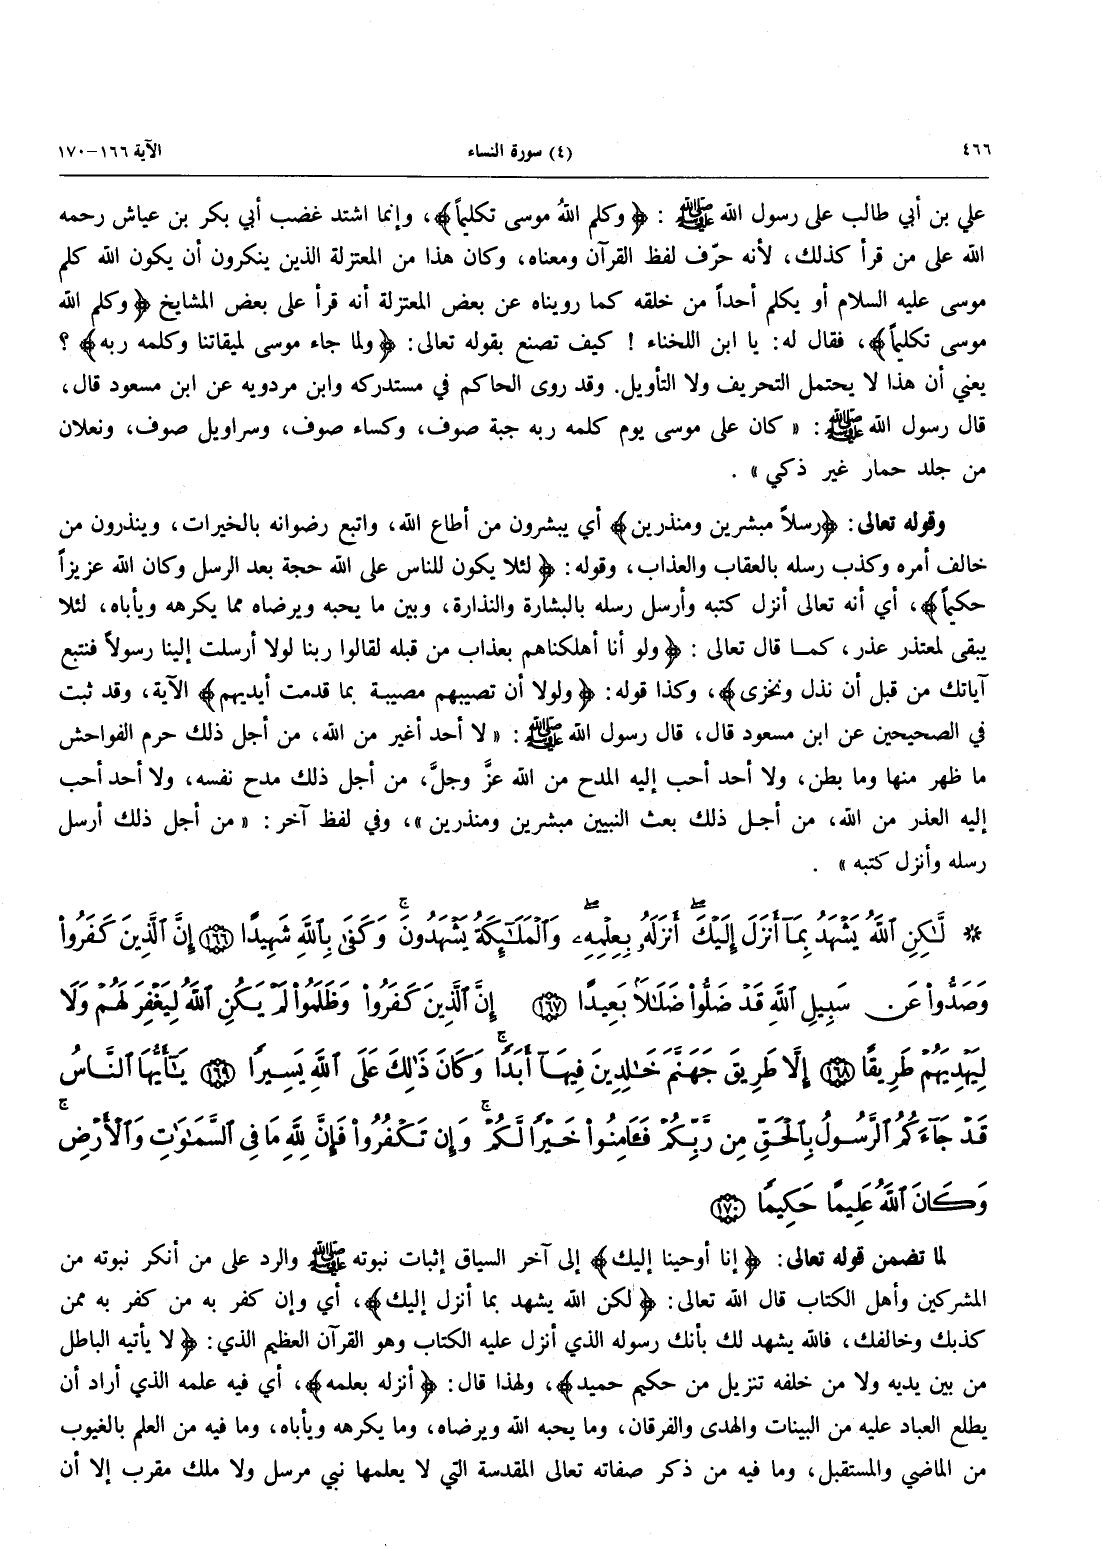 ٤٦٦ (٤) سورة النساء الآية ١٦٦-١٧٠
علي بن أبي طالب على رسول الله ﷺ : ﴿ وكلم اللهُ موسى تكليماً﴾، وإنما اشتد غضب أبي بكر بن عياش رحمه
الله على من قرأ كذلك، لأنه حرّف لفظ القرآن ومعناه، وكان هذا من المعتزلة الذين ينكرون أن يكون الله كلم
موسى عليه السلام أو يكلم أحداً من خلقه كما رويناه عن بعض المعتزلة أنه قرأ على بعض المشايخ ﴿ وكلم الله
موسى تكليماً﴾، فقال له: يا ابن اللخناء ! كيف تصنع بقوله تعالى: ﴿ولما جاء موسى لميقاتنا وكلمه ربه﴾ ؟
يعني أن هذا لا يحتمل التحريف ولا التأويل. وقد روى الحاكم في مستدركه وابن مردويه عن ابن مسعود قال،
قال رسول الله ﷺ: « كان على موسى يوم كلمه ربه جبة صوف، وكساء صوف، وسراويل صوف، ونعلان
من جلد حمار غير ذكي» .
وقوله تعالى: ﴿رسلاً مبشرين ومنذرين﴾ أي يبشرون من أطاع الله، واتبع رضوانه بالخيرات، وينذرون من
خالف أمره وكذب رسله بالعقاب والعذاب، وقوله: ﴿ لئلا يكون للناس على الله حجة بعد الرسل وكان الله عزيزاً
حكيماً﴾، أي أنه تعالى أنزل كتبه وأرسل رسله بالبشارة والنذارة، وبين ما يحبه ويرضاه مما يكرهه ويأباه، لئلا
يبقى لمعتذر عذر، كما قال تعالى : ﴿ ولو أنا أهلكناهم بعذاب من قبله لقالوا ربنا لولا أرسلت إلينا رسولاً فنتبع
آياتك من قبل أن نذل ونخزى﴾، وكذا قوله: ﴿ ولولا أن تصيبهم مصيبة بما قدمت أيديهم﴾ الآية، وقد ثبت
في الصحيحين عن ابن مسعود قال، قال رسول الله ﷺ: « لا أحد أغير من الله، من أجل ذلك حرم الفواحش
ما ظهر منها وما بطن، ولا أحد أحب إليه المدح من الله عزَّ وجلَّ، من أجل ذلك مدح نفسه، ولا أحد أحب
إليه العذر من الله، من أجل ذلك بعث النبيين مبشرين ومنذرين »، وفي لفظ آخر: « من أجل ذلك أرسل
رسله وأنزل كتبه » .
* لَّـٰكِنِ ٱللَّهُ يَشْهَدُ بِمَآ أَنزَلَ إِلَيْكَ ۖ أَنزَلَهُۥ بِعِلْمِهِۦ ۖ وَٱلْمَلَـٰٓئِكَةُ يَشْهَدُونَ ۚ وَكَفَىٰ بِٱللَّهِ شَهِيدًا ﴿١٦٦﴾ إِنَّ ٱلَّذِينَ كَفَرُوا۟
وَصَدُّوا۟ عَن سَبِيلِ ٱللَّهِ قَدْ ضَلُّوا۟ ضَلَـٰلًۢا بَعِيدًا ﴿١٦٧﴾ إِنَّ ٱلَّذِينَ كَفَرُوا۟ وَظَلَمُوا۟ لَمْ يَكُنِ ٱللَّهُ لِيَغْفِرَ لَهُمْ وَلَا
لِيَهْدِيَهُمْ طَرِيقًا ﴿١٦٨﴾ إِلَّا طَرِيقَ جَهَنَّمَ خَـٰلِدِينَ فِيهَآ أَبَدًا ۚ وَكَانَ ذَٰلِكَ عَلَى ٱللَّهِ يَسِيرًا ﴿١٦٩﴾ يَـٰٓأَيُّهَا ٱلنَّاسُ
قَدْ جَآءَكُمُ ٱلرَّسُولُ بِٱلْحَقِّ مِن رَّبِّكُمْ فَـَٔامِنُوا۟ خَيْرًا لَّكُمْ ۚ وَإِن تَكْفُرُوا۟ فَإِنَّ لِلَّهِ مَا فِى ٱلسَّمَـٰوَٰتِ وَٱلْأَرْضِ ۚ
وَكَانَ ٱللَّهُ عَلِيمًا حَكِيمًا ﴿١٧٠﴾
لما تضمن قوله تعالى: ﴿ إنا أوحينا إليك﴾ إلى آخر السياق إثبات نبوته ﷺ والرد على من أنكر نبوته من
المشركين وأهل الكتاب قال الله تعالى: ﴿ لكن الله يشهد بما أنزل إليك﴾، أي وإن كفر به من كفر به ممن
كذبك وخالفك، فالله يشهد لك بأنك رسوله الذي أنزل عليه الكتاب وهو القرآن العظيم الذي: ﴿ لا يأتيه الباطل
من بين يديه ولا من خلفه تنزيل من حكيم حميد﴾، ولهذا قال: ﴿ أنزله بعلمه﴾، أي فيه علمه الذي أراد أن
يطلع العباد عليه من البينات والهدى والفرقان، وما يحبه الله ويرضاه، وما يكرهه ويأباه، وما فيه من العلم بالغيوب
من الماضي والمستقبل، وما فيه من ذكر صفاته تعالى المقدسة التي لا يعلمها نبي مرسل ولا ملك مقرب إلا أن